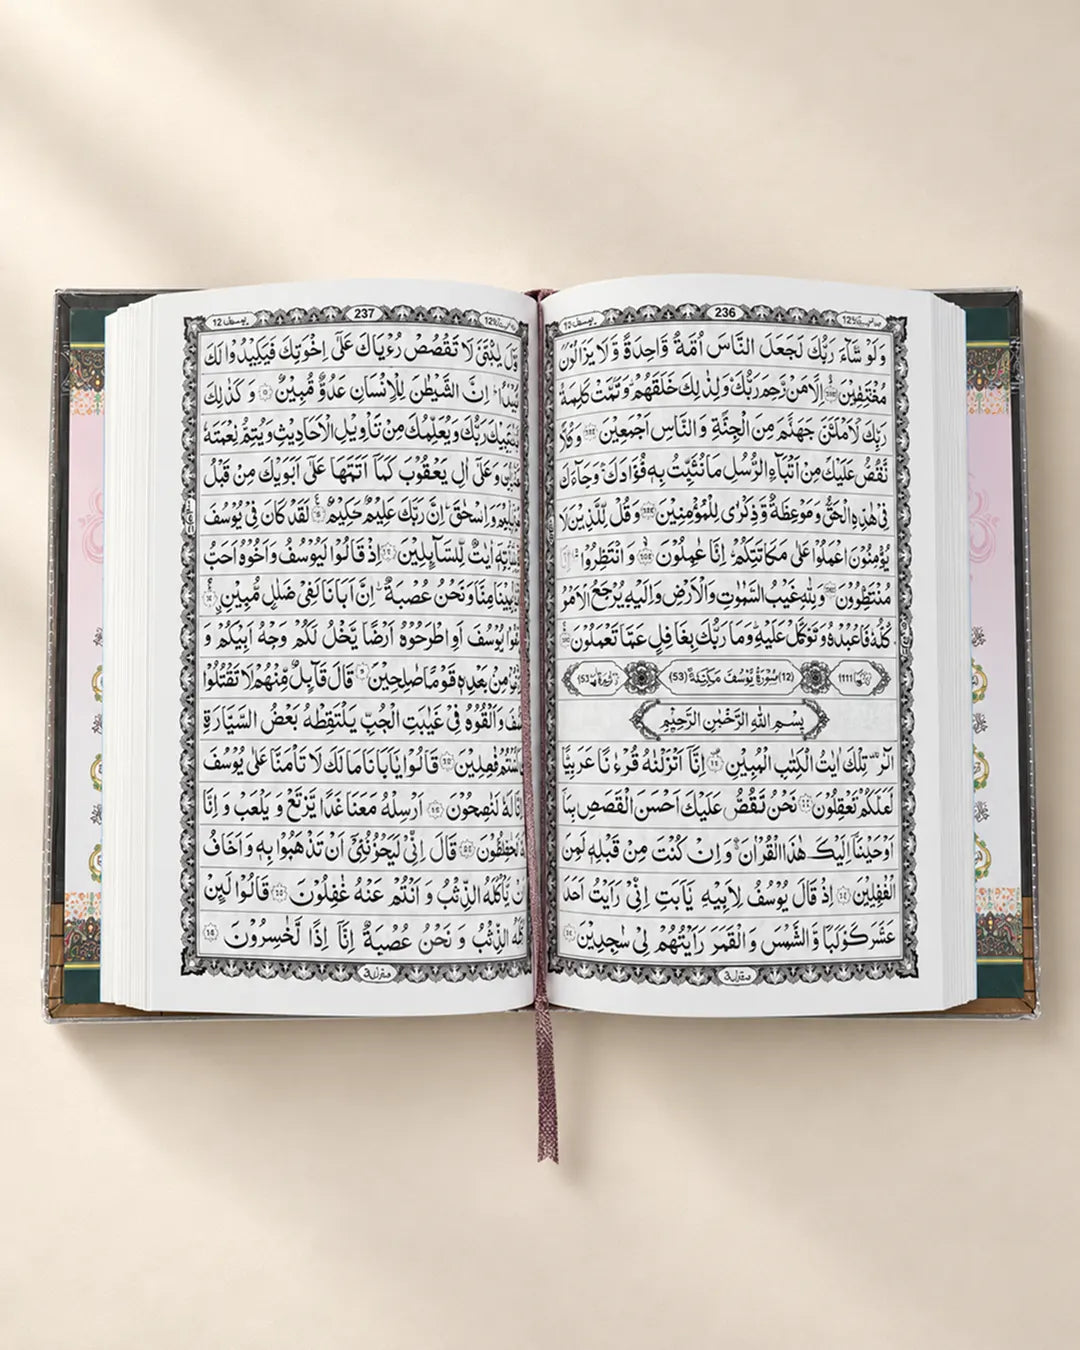 236
وَلَوْ شَآءَ رَبُّكَ لَجَعَلَ النَّاسَ اُمَّةً وَّاحِدَةً وَّلَا يَزَالُوْنَ
اِلَّا مَنْ رَّحِمَ رَبُّكَ وَلِذٰلِكَ خَلَقَهُمْ وَتَمَّتْ كَلِمَةُ
رَبِّكَ لَاَمْلَئَنَّ جَهَنَّمَ مِنَ الْجِنَّةِ وَالنَّاسِ اَجْمَعِيْنَ وَكُلًّا
نَّقُصُّ عَلَيْكَ مِنْ اَنْۢبَآءِ الرُّسُلِ مَا نُثَبِّتُ بِهٖ فُؤَادَكَ وَجَآءَكَ
فِيْ هٰذِهِ الْحَقُّ وَمَوْعِظَةٌ وَّذِكْرٰى لِلْمُؤْمِنِيْنَ وَقُلْ لِّلَّذِيْنَ لَا
يُؤْمِنُوْنَ اعْمَلُوْا عَلٰى مَكَانَتِكُمْ اِنَّا عٰمِلُوْنَ وَانْتَظِرُوْا
وَلِلّٰهِ غَيْبُ السَّمٰوٰتِ وَالْاَرْضِ وَاِلَيْهِ يُرْجَعُ الْاَمْرُ
كُلُّهٗ فَاعْبُدْهُ وَتَوَكَّلْ عَلَيْهِ وَمَا رَبُّكَ بِغَافِلٍ عَمَّا تَعْمَلُوْنَ
(12) سُوْرَةُ يُوْسُفَ مَكِّيَّةٌ (53)
بِسْمِ اللّٰهِ الرَّحْمٰنِ الرَّحِيْمِ
الٓرٰ تِلْكَ اٰيٰتُ الْكِتٰبِ الْمُبِيْنِ اِنَّآ اَنْزَلْنٰهُ قُرْءٰنًا عَرَبِيًّا
لَّعَلَّكُمْ تَعْقِلُوْنَ نَحْنُ نَقُصُّ عَلَيْكَ اَحْسَنَ الْقَصَصِ بِمَآ
اَوْحَيْنَآ اِلَيْكَ هٰذَا الْقُرْاٰنَ وَاِنْ كُنْتَ مِنْ قَبْلِهٖ لَمِنَ
الْغٰفِلِيْنَ اِذْ قَالَ يُوْسُفُ لِاَبِيْهِ يٰٓاَبَتِ اِنِّيْ رَاَيْتُ اَحَدَ
عَشَرَ كَوْكَبًا وَّالشَّمْسَ وَالْقَمَرَ رَاَيْتُهُمْ لِيْ سٰجِدِيْنَ
237
لَا تَقْصُصْ رُءْيَاكَ عَلٰٓى اِخْوَتِكَ فَيَكِيْدُوْا لَكَ
اِنَّ الشَّيْطٰنَ لِلْاِنْسَانِ عَدُوٌّ مُّبِيْنٌ وَكَذٰلِكَ
رَبُّكَ وَيُعَلِّمُكَ مِنْ تَاْوِيْلِ الْاَحَادِيْثِ وَيُتِمُّ نِعْمَتَهٗ
وَعَلٰٓى اٰلِ يَعْقُوْبَ كَمَآ اَتَمَّهَا عَلٰٓى اَبَوَيْكَ مِنْ قَبْلُ
وَاِسْحٰقَ اِنَّ رَبَّكَ عَلِيْمٌ حَكِيْمٌ لَقَدْ كَانَ فِيْ يُوْسُفَ
اٰيٰتٌ لِّلسَّآىِٕلِيْنَ اِذْ قَالُوْا لَيُوْسُفُ وَاَخُوْهُ اَحَبُّ
مِنَّا وَنَحْنُ عُصْبَةٌ اِنَّ اَبَانَا لَفِيْ ضَلٰلٍ مُّبِيْنِ
يُوْسُفَ اَوِ اطْرَحُوْهُ اَرْضًا يَّخْلُ لَكُمْ وَجْهُ اَبِيْكُمْ وَ
مِنْ بَعْدِهٖ قَوْمًا صٰلِحِيْنَ قَالَ قَآىِٕلٌ مِّنْهُمْ لَا تَقْتُلُوْا
وَاَلْقُوْهُ فِيْ غَيٰبَتِ الْجُبِّ يَلْتَقِطْهُ بَعْضُ السَّيَّارَةِ
فٰعِلِيْنَ قَالُوْا يٰٓاَبَانَا مَا لَكَ لَا تَاْمَنَّا عَلٰى يُوْسُفَ
لَهٗ لَنٰصِحُوْنَ اَرْسِلْهُ مَعَنَا غَدًا يَّرْتَعْ وَيَلْعَبْ وَاِنَّا
لَحٰفِظُوْنَ قَالَ اِنِّيْ لَيَحْزُنُنِيْٓ اَنْ تَذْهَبُوْا بِهٖ وَاَخَافُ
اَنْ يَّاْكُلَهُ الذِّئْبُ وَاَنْتُمْ عَنْهُ غٰفِلُوْنَ قَالُوْا لَىِٕنْ
الذِّئْبُ وَنَحْنُ عُصْبَةٌ اِنَّآ اِذًا لَّخٰسِرُوْنَ